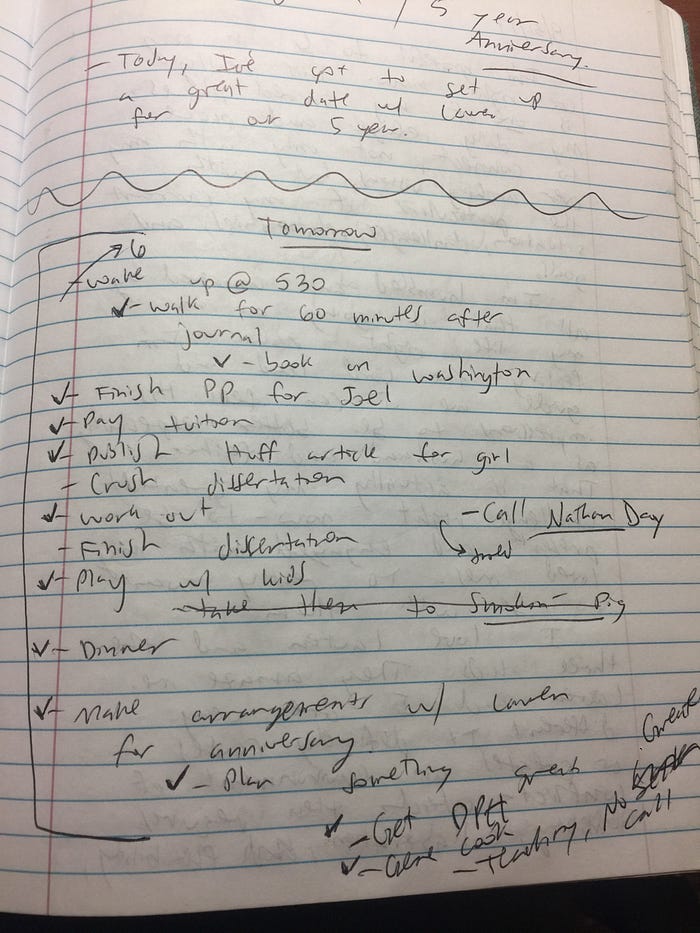 5 year
Anniversary.
- Today, I've got to set up
a great date w/ Lauren
for our 5 year.
Tomorrow
6
- wake up @ 530
✓- walk for 60 minutes after
journal
✓ - book on Washington
✓- Finish PP for Joel
✓- Pay tuition
✓- Publish Huff article for girl
- Crush dissertation
✓- work out
- Call Nathan Day
- Finish dissertation
✓- Play w/ kids
take them to Smokin Pig
✓- Dinner
✓- Make arrangements w/ Lauren
for anniversary.
✓ - Plan something great
✓ - Get DPH
✓ - Gene Cook
- Teaching, No
call